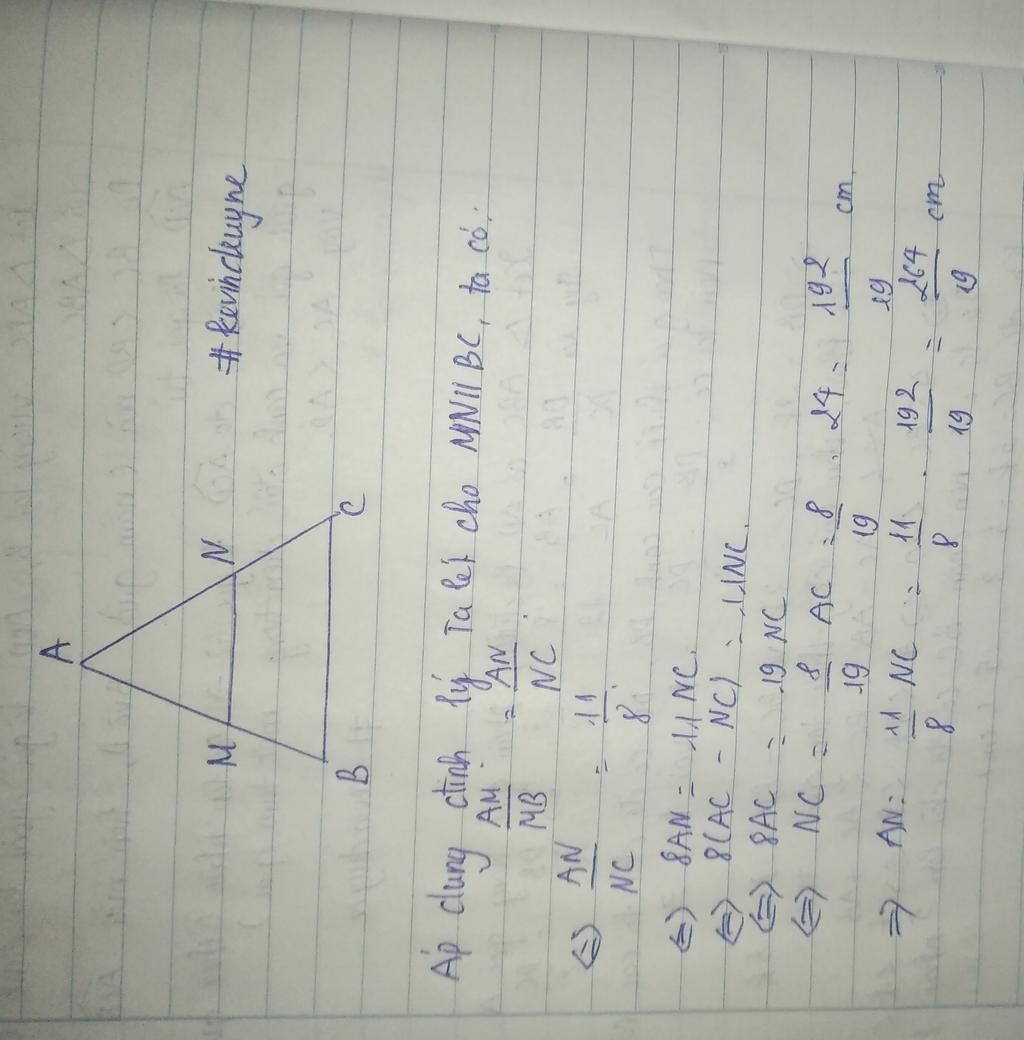 A
M
N
#kevinchuyne
B
C
Áp dụng định lý Ta lét cho MN//BC, ta có:
AM/MB = AN/NC
(=) AN/NC = 11/8
(=) 8AN = 11NC.
(=) 8(AC - NC) = 11NC.
(=) 8AC = 19NC
(=) NC = 8/19 AC = 8/19 . 24 = 192/19 cm
=) AN = 11/8 NC = 11/8 . 192/19 = 264/19 cm